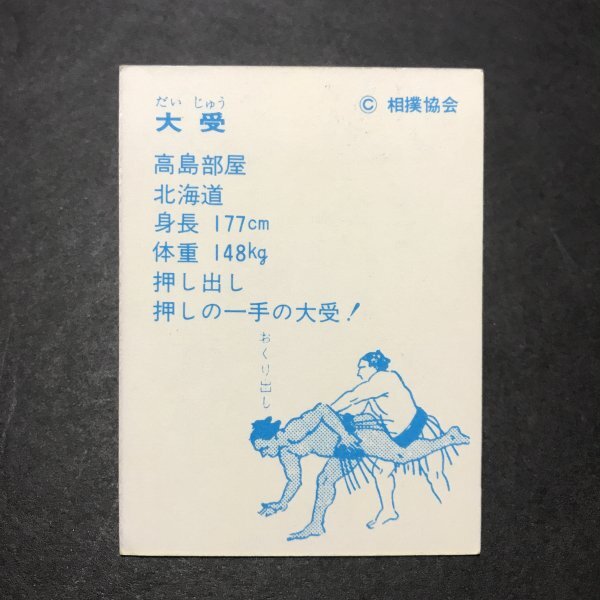 だい じゅう
大受
© 相撲協会
高島部屋
北海道
身長 177cm
体重 148kg
押し出し
押しの一手の大受!
おくり出し